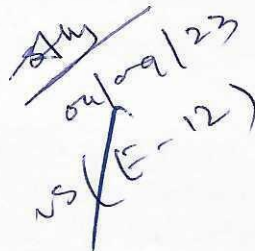 04/09/23
NS (E-12)